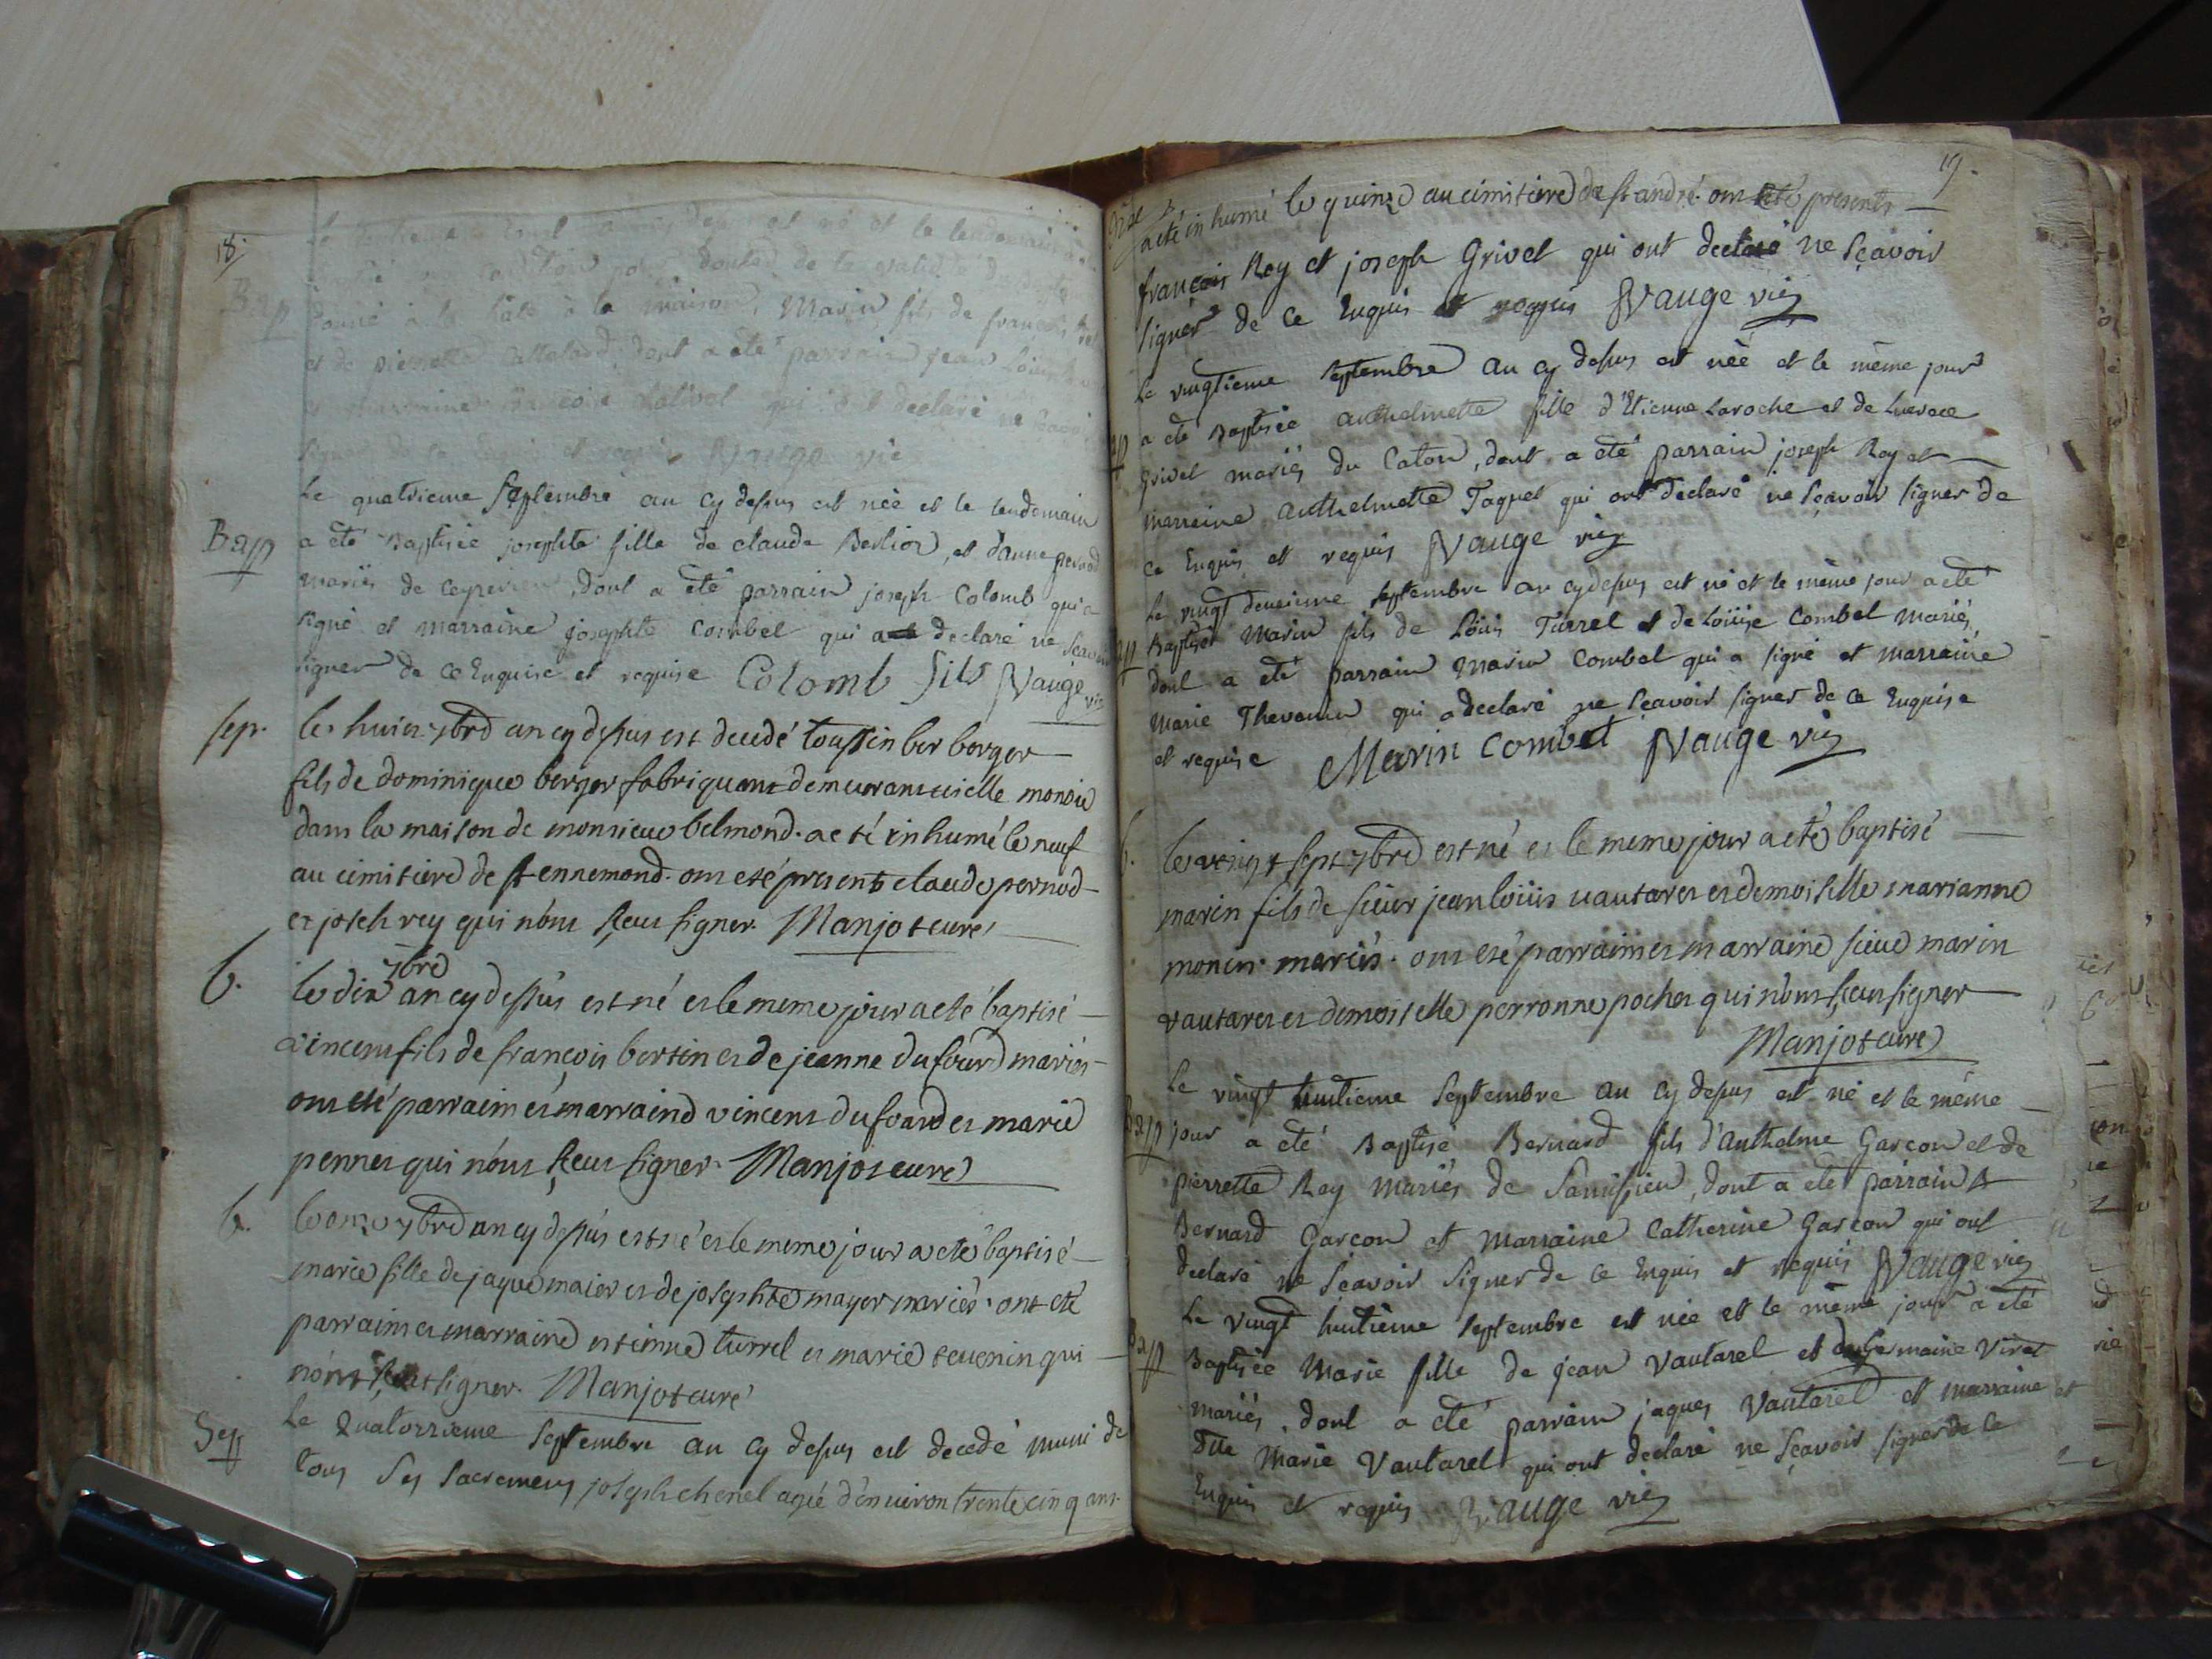 18.
est né et le lendemain
donné à la hâte à la maison, Marin fils de francois
Bap
et de pierrette dont a été parrain jean Loüis
et marraine francoise qui ont declaré ne
signer de ce Enquis et requis Vauge vic
Le quatrieme Septembre an cy dessus est née et le lendemain
Bap
a été Baptisée josephte fille de claude Berlioz, et d'anne pernod
mariés de dont a été parrain joseph Colomb qui a
signé et marraine josephte Combet qui a declaré ne Scavoir
signer de ce Enquise et requise Colomb fils JVauge vic
sep.
le huict 7bre an cy dessus est decedé toussin ber berger
fils de dominique berger fabriquant demeurant monoie
dans la maison de monsieur belmond. a eté inhumé le neuf
au cimitiere de st ennemond. ont eté presents claude pernod
et joseh rey qui n'ont sçeut signer. Manjot curé
b.
7bre
le dix an cy dessus est né et le meme jour a eté baptisé
vincent fils de françois bertin et de jeanne dufourd mariés
ont eté parrain et marraine vincent dufourd et marie
pennet qui n'ont sçeut signer. Manjot curé
b.
le onze 7bre an cy dessus est né et le meme jour a eté baptisé
marie fille de jaque maier et de josephte mayer mariés. ont eté
parrain et marraine estienne turrel et marie tevenin qui
n'ont sçeut signer. Manjot curé
Sep
Le Quatorzieme Septembre an cy dessus est decedé muni de
tous ses sacremens joseph chenel agé d'environ trente cinq ans.
19.
a été inhumé le quinze au cimitiere de st andré. ont eté presents
françois Rey et joseph Grivet qui ont declaré ne sçavoir
signer de ce Enquis et requis JVauge vic
Le vingtieme septembre an cy dessus est née et le même jour
Bap
a été Baptisée anthelmette fille d'Etienne Laroche et de Lucrece
Grivet mariés du Caton, dont a été parrain joseph Rey et
marraine anthelmette Taquet qui ont declaré ne sçavoir signer de
ce Enquis et requis JVauge vic
Le vingt deuxieme septembre an cy dessus est né et le même jour a été
Bap
Baptisé Marin fils de Loüis Turrel et de Loüise Combet mariés,
dont a été parrain Marin Combet qui a signé et marraine
Marie Thevenin qui a declaré ne sçavoir signer de ce Enquise
et requise Marin Combet JVauge vic
b.
le vingt sept 7bre est né et le meme jour a eté baptisé
marin fils de sieur jean loüis vautaret et demoiselle marianne
monet. mariés. ont eté parrain et marraine sieur marin
vautaret et demoiselle perronne pochet qui n'ont sçeu signer
Manjot curé
Le vingt huitieme Septembre an cy dessus est né et le même
Bap
jour a été Baptisé Bernard fils d'anthelme Garçon et de
pierrette Rey mariés de Samissieu, dont a été parrain
Bernard Garçon et marraine Catherine Garçon qui ont
declaré ne sçavoir signer de ce Enquis et requis JVauge vic
Le vingt huitième septembre est née et le même jour a été
Bap
Baptisée Marie fille de jean Vautaret et de germaine Viret
mariés, dont a été parrain jaques Vautaret et marraine
Dlle Marie Vautaret qui ont declaré ne sçavoir signer de ce
Enquis et requis JVauge vic